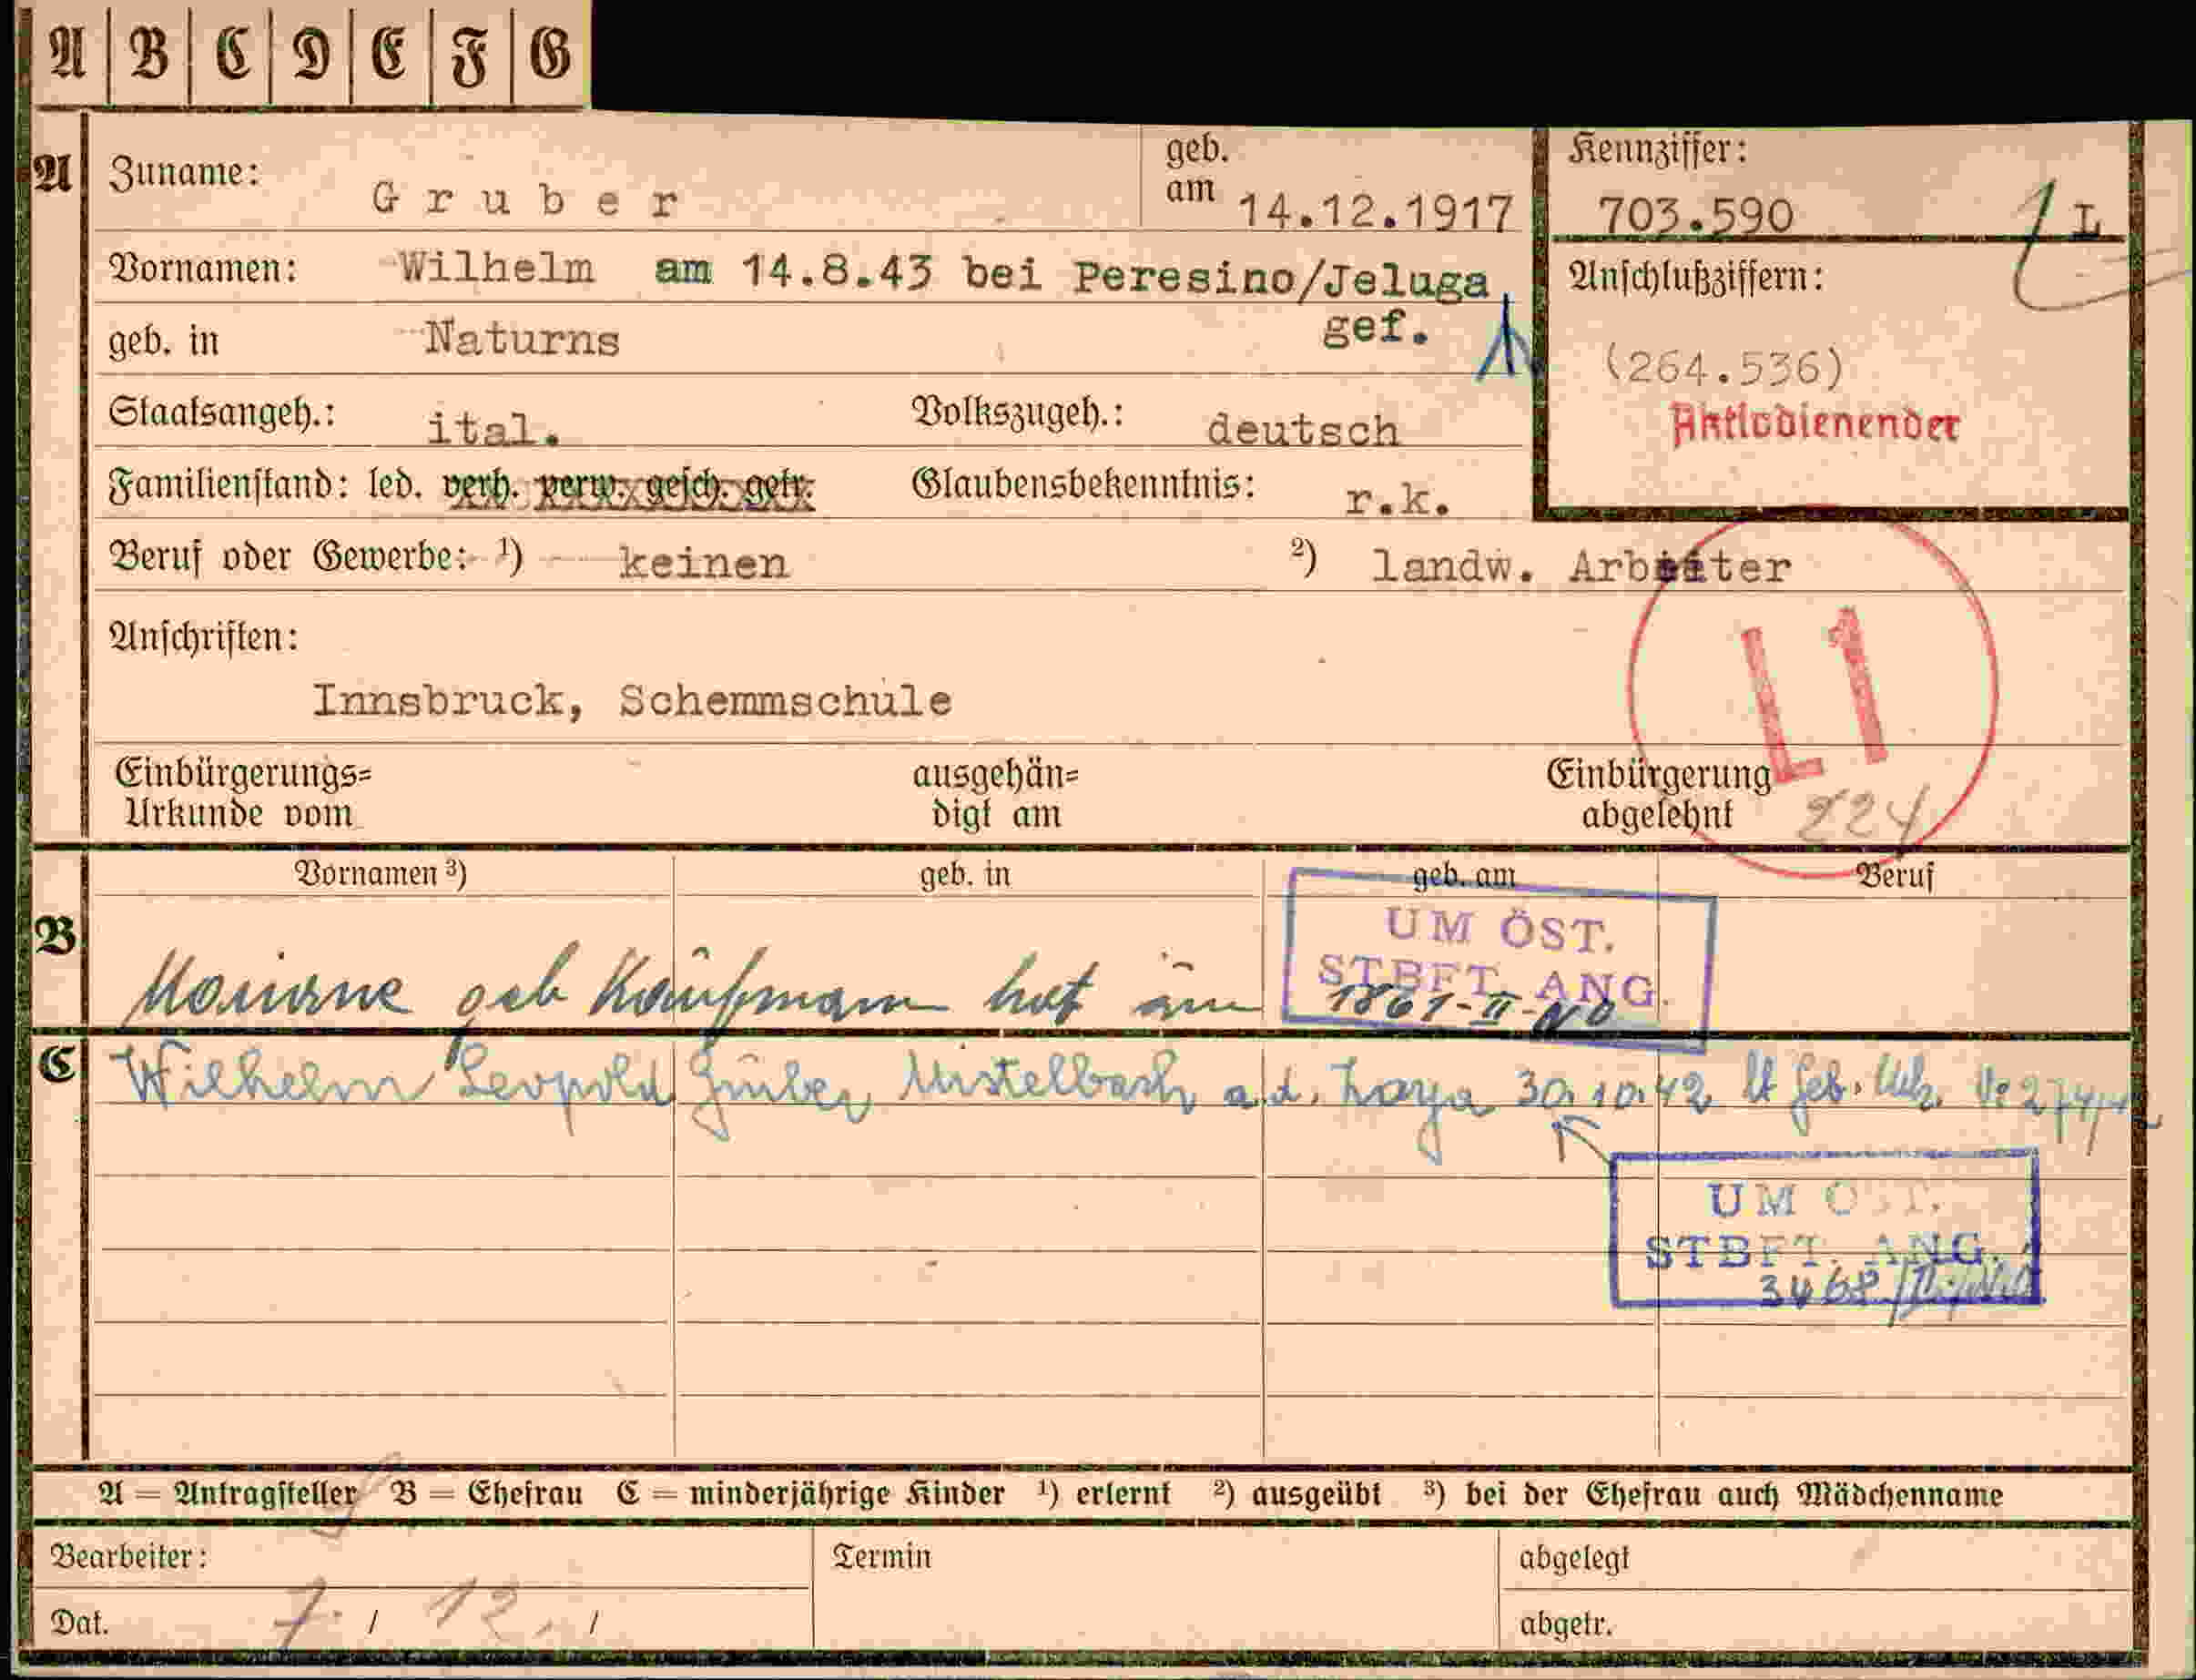 A B C D E F G
A Zuname: Gruber geb. am 14.12.1917 Kennziffer: 703.590 1 L
Vornamen: Wilhelm am 14.8.43 bei Peresino/Jeluga gef. Anschlußziffern:
geb. in Naturns (264.536)
Staatsangeh.: ital. Volkszugeh.: deutsch Aktivdienender
Familienstand: led. verh. verw. gesch. getr. Glaubensbekenntnis: r.k.
Beruf oder Gewerbe: ¹) keinen ²) landw. Arbeiter
Anschriften: L1
Innsbruck, Schemmschule
Einbürgerungs= ausgehän= Einbürgerung
Urkunde vom digt am abgelehnt 224
Vornamen ³) geb. in geb. am Beruf
UM ÖST.
STBFT. ANG.
B Marianne geb Kaufmann hat am 1861-II-NO
C Wilhelm Leopold Gruber Mistelbach a.d. Zaya 30.10.42 lt Geb. Urk. No 274/42
UM ÖST.
STBFT. ANG.
3468
A = Antragsteller B = Ehefrau C = minderjährige Kinder ¹) erlernt ²) ausgeübt ³) bei der Ehefrau auch Mädchenname
Bearbeiter: Termin abgelegt
Dat. 7. / 12. / abgetr.